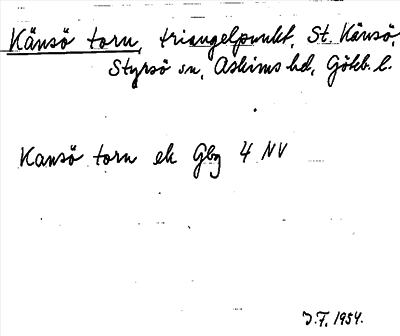 Känsö torn, triangelpunkt, St. Känsö,
Styrsö sn, Askims hd, Göteb. l.
Kansö torn ek Gbg 4 NV
J.F. 1954.